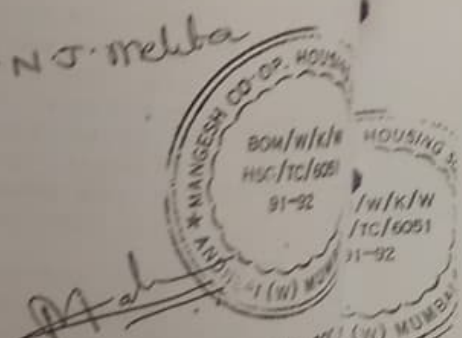 N J. Mehta
* MANGESH CO-OP. HOUSING
BOM/W/K/W
HSG/TC/6051
91-92
(W) MUM
HOUSING S
/W/K/W
/TC/6051
91-92
(W) MUMBAI